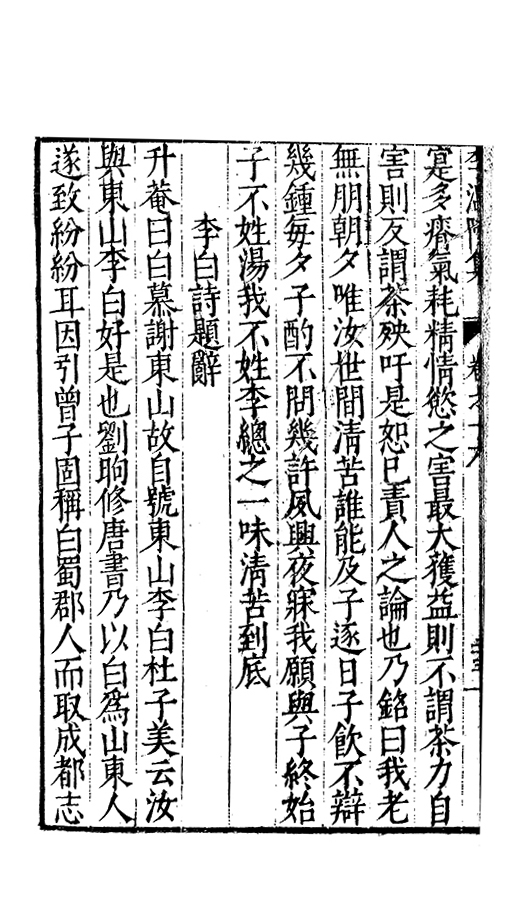 李溫陵集 卷之十六
寔多瘠氣耗精情慾之害最大獲益則不謂茶力自
害則反謂茶殃吁是恕已責人之論也乃銘曰我老
無朋朝夕唯汝世間清苦誰能及子逐日子飲不辯
幾鍾每夕子酌不問幾許夙興夜寐我願與子終始
子不姓湯我不姓李總之一味清苦到底
李白詩題辭
升菴曰白慕謝東山故自號東山李白杜子美云汝
與東山李白好是也劉昫修唐書乃以白爲山東人
遂致紛紛耳因引曾子固稱白蜀郡人而取成都志